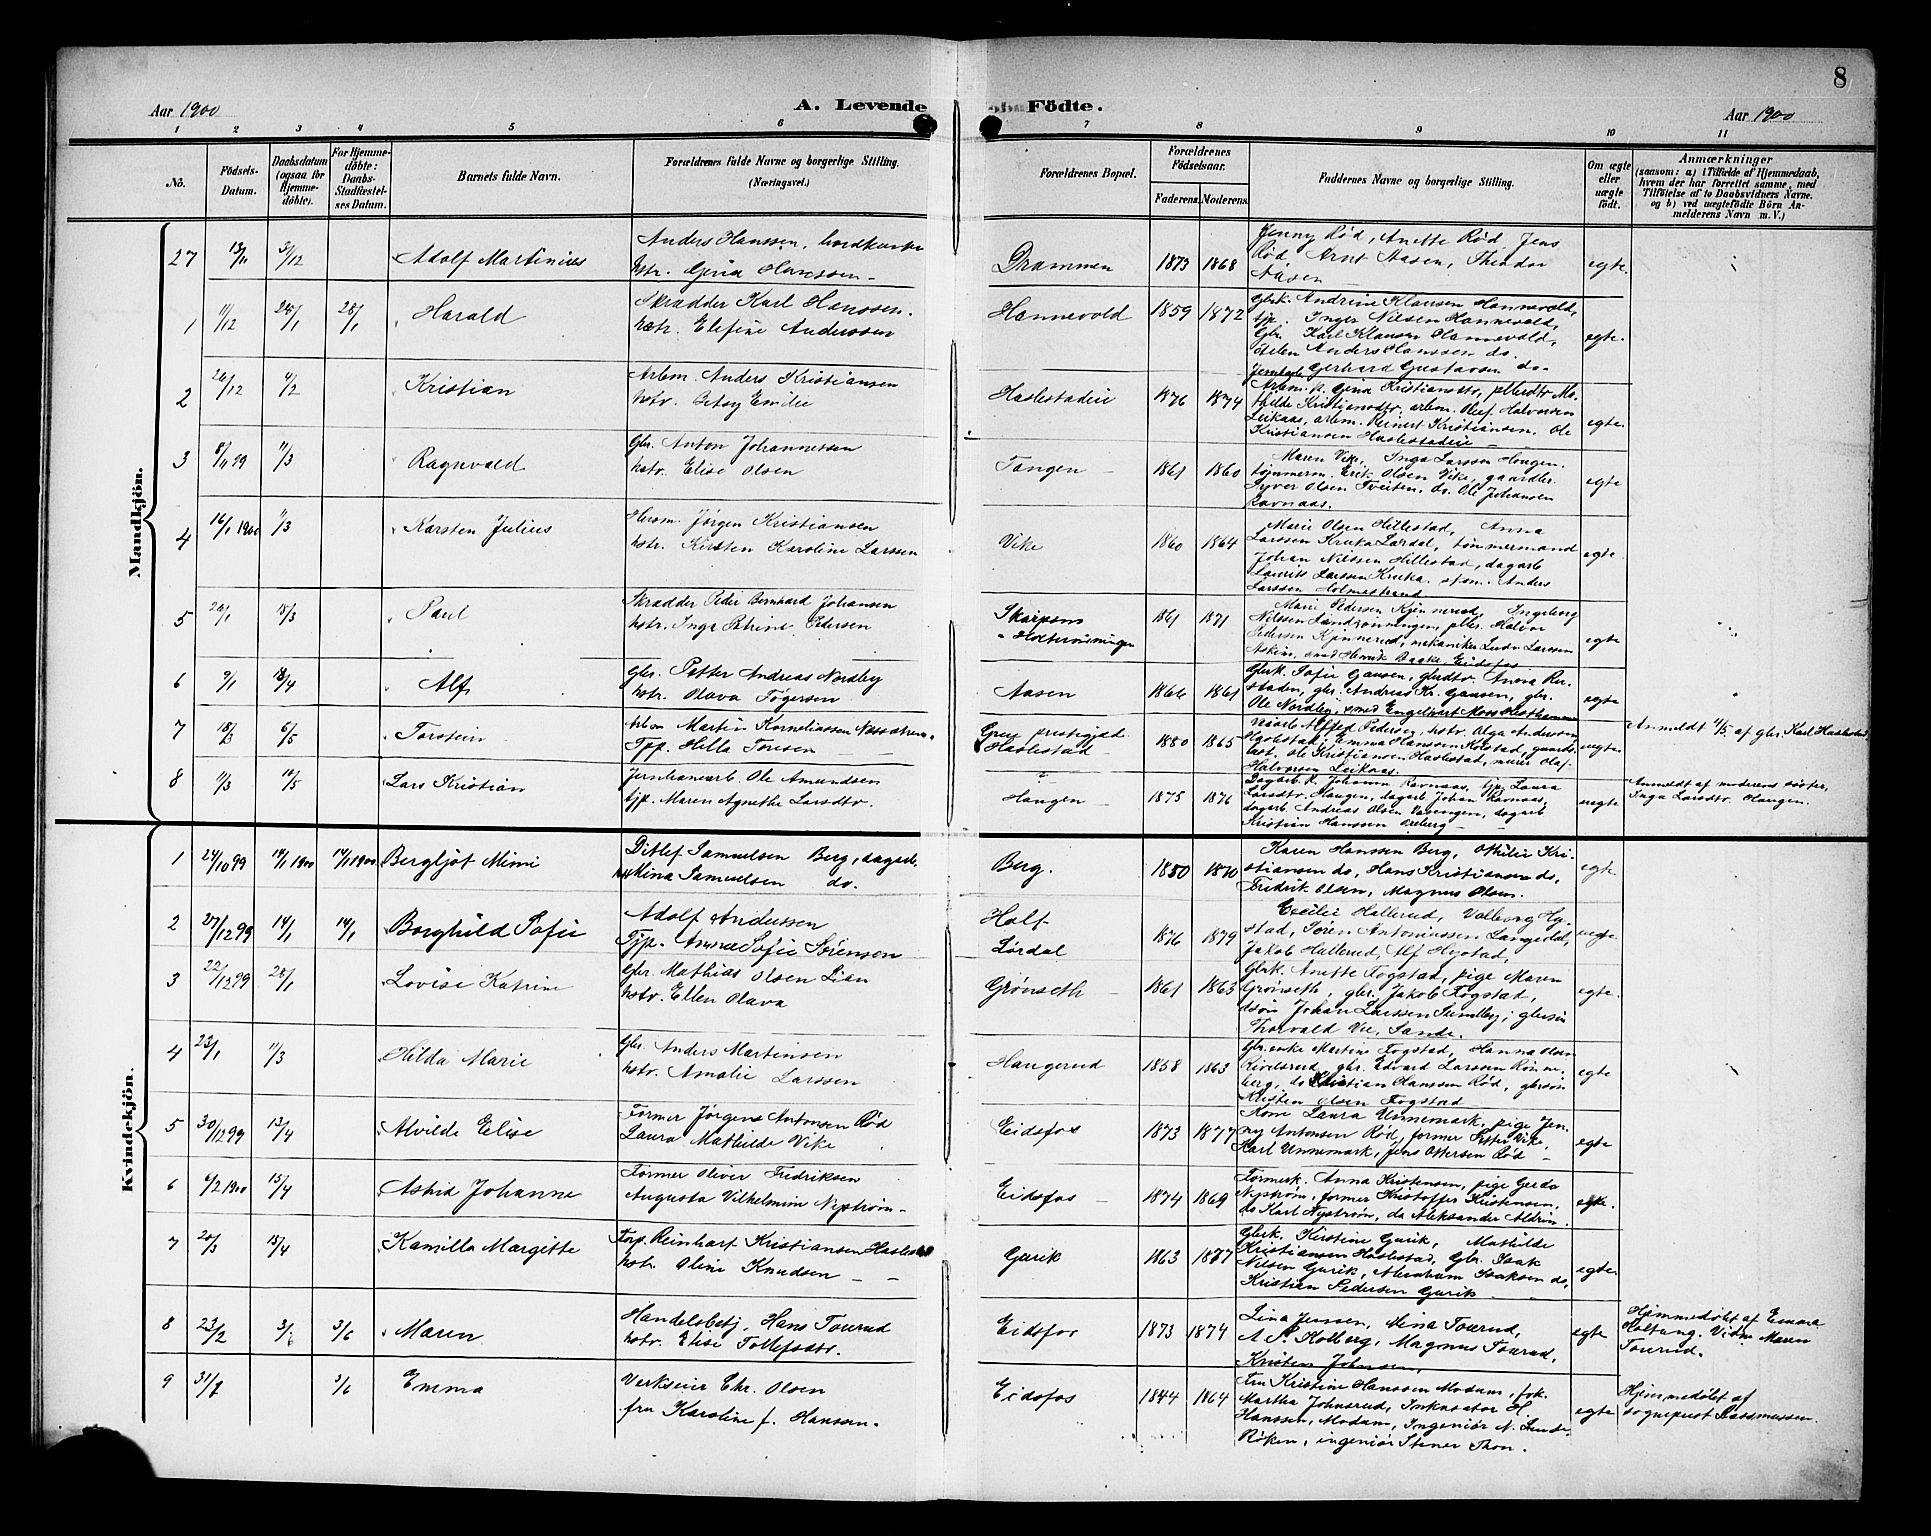 8
Aar 1900
A. Levende Födte.
Aar 1900
1 2 3 4 5 6 7 8 9 10 11
No.
Födsels-
Datum.
Daabsdatum
(ogsaa for
Hjemme-
döbte).
For Hjemme-
döbte:
Daabs-
Stadfæstel-
ses Datum.
Barnets fulde Navn.
Forældrenes fulde Navne og borgerlige Stilling.
(Næringsvei.)
Forældrenes Bopæl.
Forældrenes
Födselsaar.
Faderens. Moderens.
Faddernes Navne og borgerlige Stilling.
Om ægte
eller
uægte
födt.
Anmærkninger
(saasom: a) i Tilfælde af Hjemmedaab,
hvem der har forrettet samme, med
Tilföielse af to Daabsvidners Navne.
og b) ved uægtefödte Börn An-
melderens Navn m. V.)
Mandkjön.
27 13/11 3/12 Adolf Martinius
Anders Hanssen,
hstr. Gina Hanssen -
Drammen 1873 1868
Jenny Rød, Anette Rød, Jens
Rød, Arnt Aasen, Theodor
Aasen
egte.
1 11/12 28/1 28/1 Harald
Skrædder Karl Hanssen.
hstr. Elefine Anderssen
Hannevold 1859 1872
Gbrk. Andrine Klausen Hannevold,
tjp. Inger Nilsen Hannevold,
Gbr. Karl Klausen Hannevold,
Anders Hanssen do.
Gerhard Gustavsen do-
egte.
2 26/12 4/2 Kristian
Arbm. Anders Kristiansen
hstr. Betsy Emilie
Haslestadeie 1876 1874
Arbm. k. Gina Kristiansdtr, Ma-
thilde Kristiansdtr, arbm. Oluf Halvorsen
Leikaas, arbm. Reinert Kristiansen, Ole
Kristiansen Haslestadeie -
egte.
3 8/11 99 11/3 Ragnvald
Gbr. Anton Johannessen
hstr. Elise Olsen
Tangen - 1861 1860
Maren Vike, Inga Larssen Haugen,
tømmerm. Erik Olsen Vike, gaardbr.
Syver Olsen Tveiten, do. Ole Johansen
Ravnaas.
egte
4 16/1 1900 11/3 Karsten Julius
Jørgen Kristiansen
hstr. Kirsten Karoline Larssen
Vike 1860 1864
Marie Olsen Hillestad, Anna
Larssen Kruka Lørdal, tømmermand
Johan Nilssen Hillestad, dagarb
Laurits Larssen Kruka, Anders
Larssen Holmestrand
egte.
5 26/1 18/3 Paul
Skrædder Peder Bernhard Johansen
hstr. Inga Petrine Pedersen
Skarpsno
1861 1871
Marie Pedersen Kjønnerud, Ingeborg
Nilssen Sandrønningen, Halvor
Pedersen Kjønnerud, mekaniker Ludv. Larssen
smed Henrik Baake Eidsfos
egte
6 9/1 18/4 Alf
Gbr. Petter Andreas Nordby
hstr. Olava Tøgersen
Aasen 1866 1861
Gbrk. Sofie Gausen, gbrdtr. Anna Re-
staden, gbr. Andreas Kr. Gausen, gbr.
Ole Nordby, smed Engelhart Moss
egte
7 18/3 6/5 Torstein
Arbm Martin Korneliussen
Tjp. Hilla Toresen -
Haslestad - 1880 1865
Alfred Pedersen, hstr. Olga Andersen
Haslestad, Emma Hanssen
Ole Kristiansen Haslestad, Olaf
Halvorsen Leikaas.
uegte
Anmeldt af gbr. Karl Haslestad
8 11/3 10/5 Lars Kristian
Jernbanearb. Ole Amundsen
tjp. Maren Agnethe Larsdtr.
?
Haugen - 1875 1876
Dagarb. k. Johanne Ravnaas, tjp Laura
Larsdtr. Haugen, dagarb Johan Ravnaas,
dagarb Andreas Olsen dagarb
Kristian Hanssen -
uegte
Anmeldt af moderens søster,
Inga Larsdtr. Haugen.
Kvindekjön.
1 24/10 99 14/1 1900 14/1 1900 Bergljot Mimi
Ditlef Samuelsen Berg, dagarb.
Mina Samuelsen do.
Berg. 1850 1870
Karen Hanssen Berg, Othilie Kri-
stiansen do, Hans Kristiansen do,
Fredrik Olsen, Magnus Olsen.
egte
2 27/12 99 14/1 14/1 Borghild Sofie
Adolf Anderssen
Tjp. Anna Sofie Sørensen
Holt
Lørdal 1876 1879
Cecilie Hallerud, Valborg Hy-
stad, Søren Antoniussen Langedal,
Jakob Hallerud, Alf Hystad,
uegte
3 22/12 99 28/1 Lovise Katrine
Gbr Mathias Olsen Lian
hstr. Ellen Olava
Grønseth - 1861 1863
Gbrk. Anette Fogstad, pige Maren
Grønseth, gbr. Jakob Fogstad,
Johan Larssen Sundby, gbrsøn
Thorvald Vee, Sande.
egte.
4 23/1 11/3 Hilda Marie
Gbr Anders Martinsen
hstr. Amalie Larssen
Haugerud 1858 1863
Gbr.enke Martine Fogstad, Hanna Olsen
gbr. Edvard Larssen Røn
berg, do Kristian Hanssen Rød, gbrsøn
Kristen Olsen Fogstad
egte
5 30/12 99 13/4 Alvilde Elise
Former Jørgens Antonsen Rød
Laura Mathilde Vike
Eidsfos 1873 1877
Kone Laura Unnemark, pige Jen-
ny Antonsen Rød, former Petter Vike,
Karl Unnemark, Jens Ottersen Rød -
egte
6 6/2 1900 13/4 Astrid Johanne
Former Oliver Fredriksen
Augusta Vilhelmine Nystrøm -
Eidsfos - 1874 1869
Formersk. Anna Kristensen, pige Gerda
Nystrøm, former Kristoffer Kristensen,
do Karl Nystrøm, do Aleksander Aldrin
egte.
7 20/3 15/4 Kamilla Margitte
Reinhart Kristiansen Haslestad
hstr. Oline Knudsen - -
Gurik 1863 1877
Gbrk. Kirstine Gurik, Mathilde
Kristiansen Haslestad, Gbr Isak
Nilsen Gurik, Abraham Isaksen do,
Kristian Pedersen Gurik -
egte.
8 23/2 3/6 3/6 Maren
Handelsbetj. Hans Tourud
hstr. Elise Tollefsdtr.
Eidsfos 1873 1874
Lina Jenssen, Lina Tourud,
A. P. Kolberg, Magnus Tourud,
Kristen Johnsen,
egte
Hjemmedøbt af Emma
Holtung. Vidne Maren
Tourud.
9 31/7 3/6 Emma
Verkseier Chr. Olsen
fru Karoline f. Hanssen.
Eidsfos 1844 1864
Fru Kristine Hanssen Modum, frk.
Martha Johnsrud, Inkassator H.
Hanssen, Modum, Ingeniør N. Linde
Røken, ingeniør Stener Thon.
egte
Hjemmedøbt af
sogneprest Rasmussen.